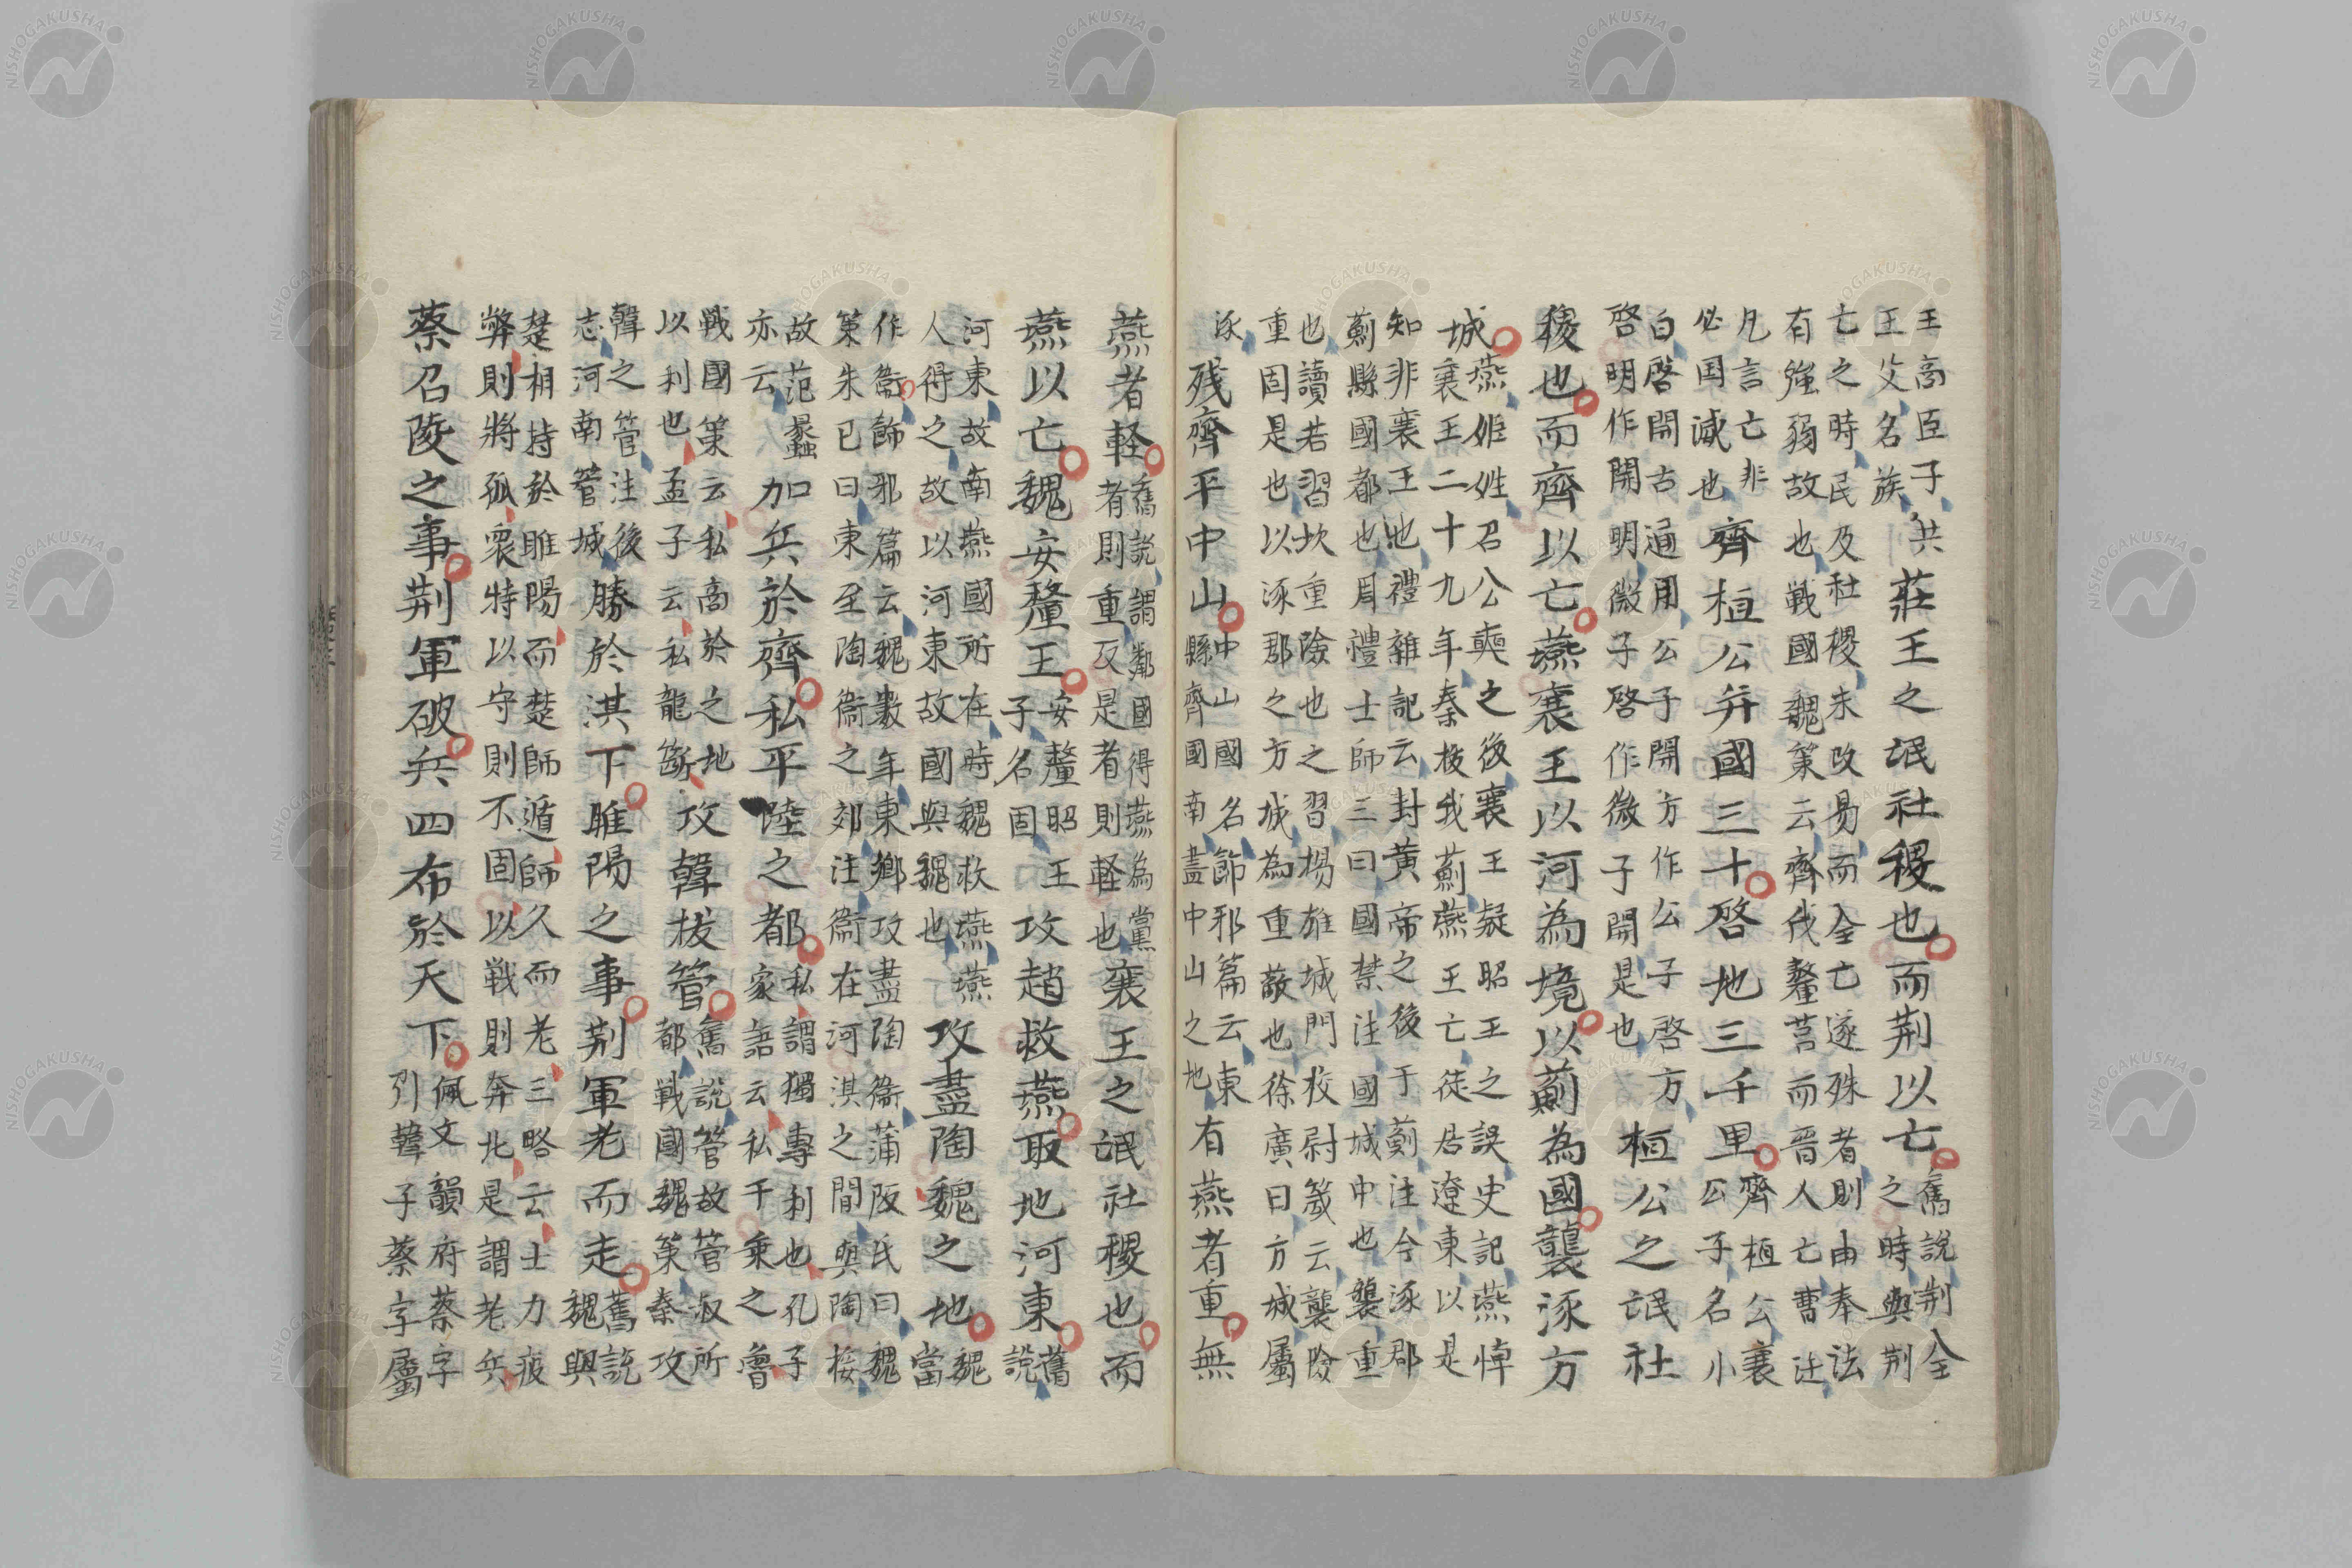 王高臣子共
王父名族
莊王之氓社稷也而荊以亡
舊說荊全
之時與荊
亡之時民及社稷未改易而全亡遂殊者則由奉法
有強弱故也戰國魏策云齊伐釐莒而晉人亡曹迁
凡言亡非
必国滅也
齊桓公并國三十啓地三千里
齊桓公襄
公子名小
白啓開古通用公子開方作公子啓方
啓明作開明微子啓作微子開是也
桓公之氓社
稷也而齊以亡燕襄王以河為境以薊為國襲涿方
城
燕姫姓召公奭之後襄王疑昭王之誤史記燕悼
襄王二十九年秦拔我薊燕王亡徒居遼東以是
知非襄王也禮雜記云封黃帝之後于薊注今涿郡
薊縣國都也周禮士師三曰國禁注國城中也襲重
也讀若習坎重險也之習揚雄城門校尉箴云襲險
重固是也以涿郡之方城為重蔽也徐廣曰方城屬
涿
残齊平中山
中山國名飾邪篇云東
縣齊國南盡中山之地
有燕者重無
燕者軽
舊説謂鄰國得燕為黨
者則重反是者則軽也
襄王之氓社稷也而
燕以亡魏安釐王
安釐昭王
子名固
攻趙救燕取地河東
舊
説
河東故南燕國所在時魏救燕燕
人得之故以河東故國與魏也
攻盡陶魏之地
魏
當
作衞飾邪篇云魏數年東鄉攻盡陶衞蒲阪氏曰魏
策朱已曰東至陶衞之郊注衞在河淇之間與陶接
故范蠡
亦云
加兵於齊私平陸之都
私謂獨專利也孔子
家語云私千乘之魯
戰國策云私商於之地
以利也孟子云私龍斷
攻韓拔管
舊説管故管叔所
都戰國魏策秦攻
韓之管注後
志河南管城
勝於淇下睢陽之事荊軍老而走
舊説
魏與
楚相持於睢陽而楚師遁師久而老三略云士力疲
弊則將孤衆特以守則不固以戰則奔北是謂老兵
蔡召陵之事荊軍破兵四布於天下
佩文韻府蔡字
引韓子蔡字屬